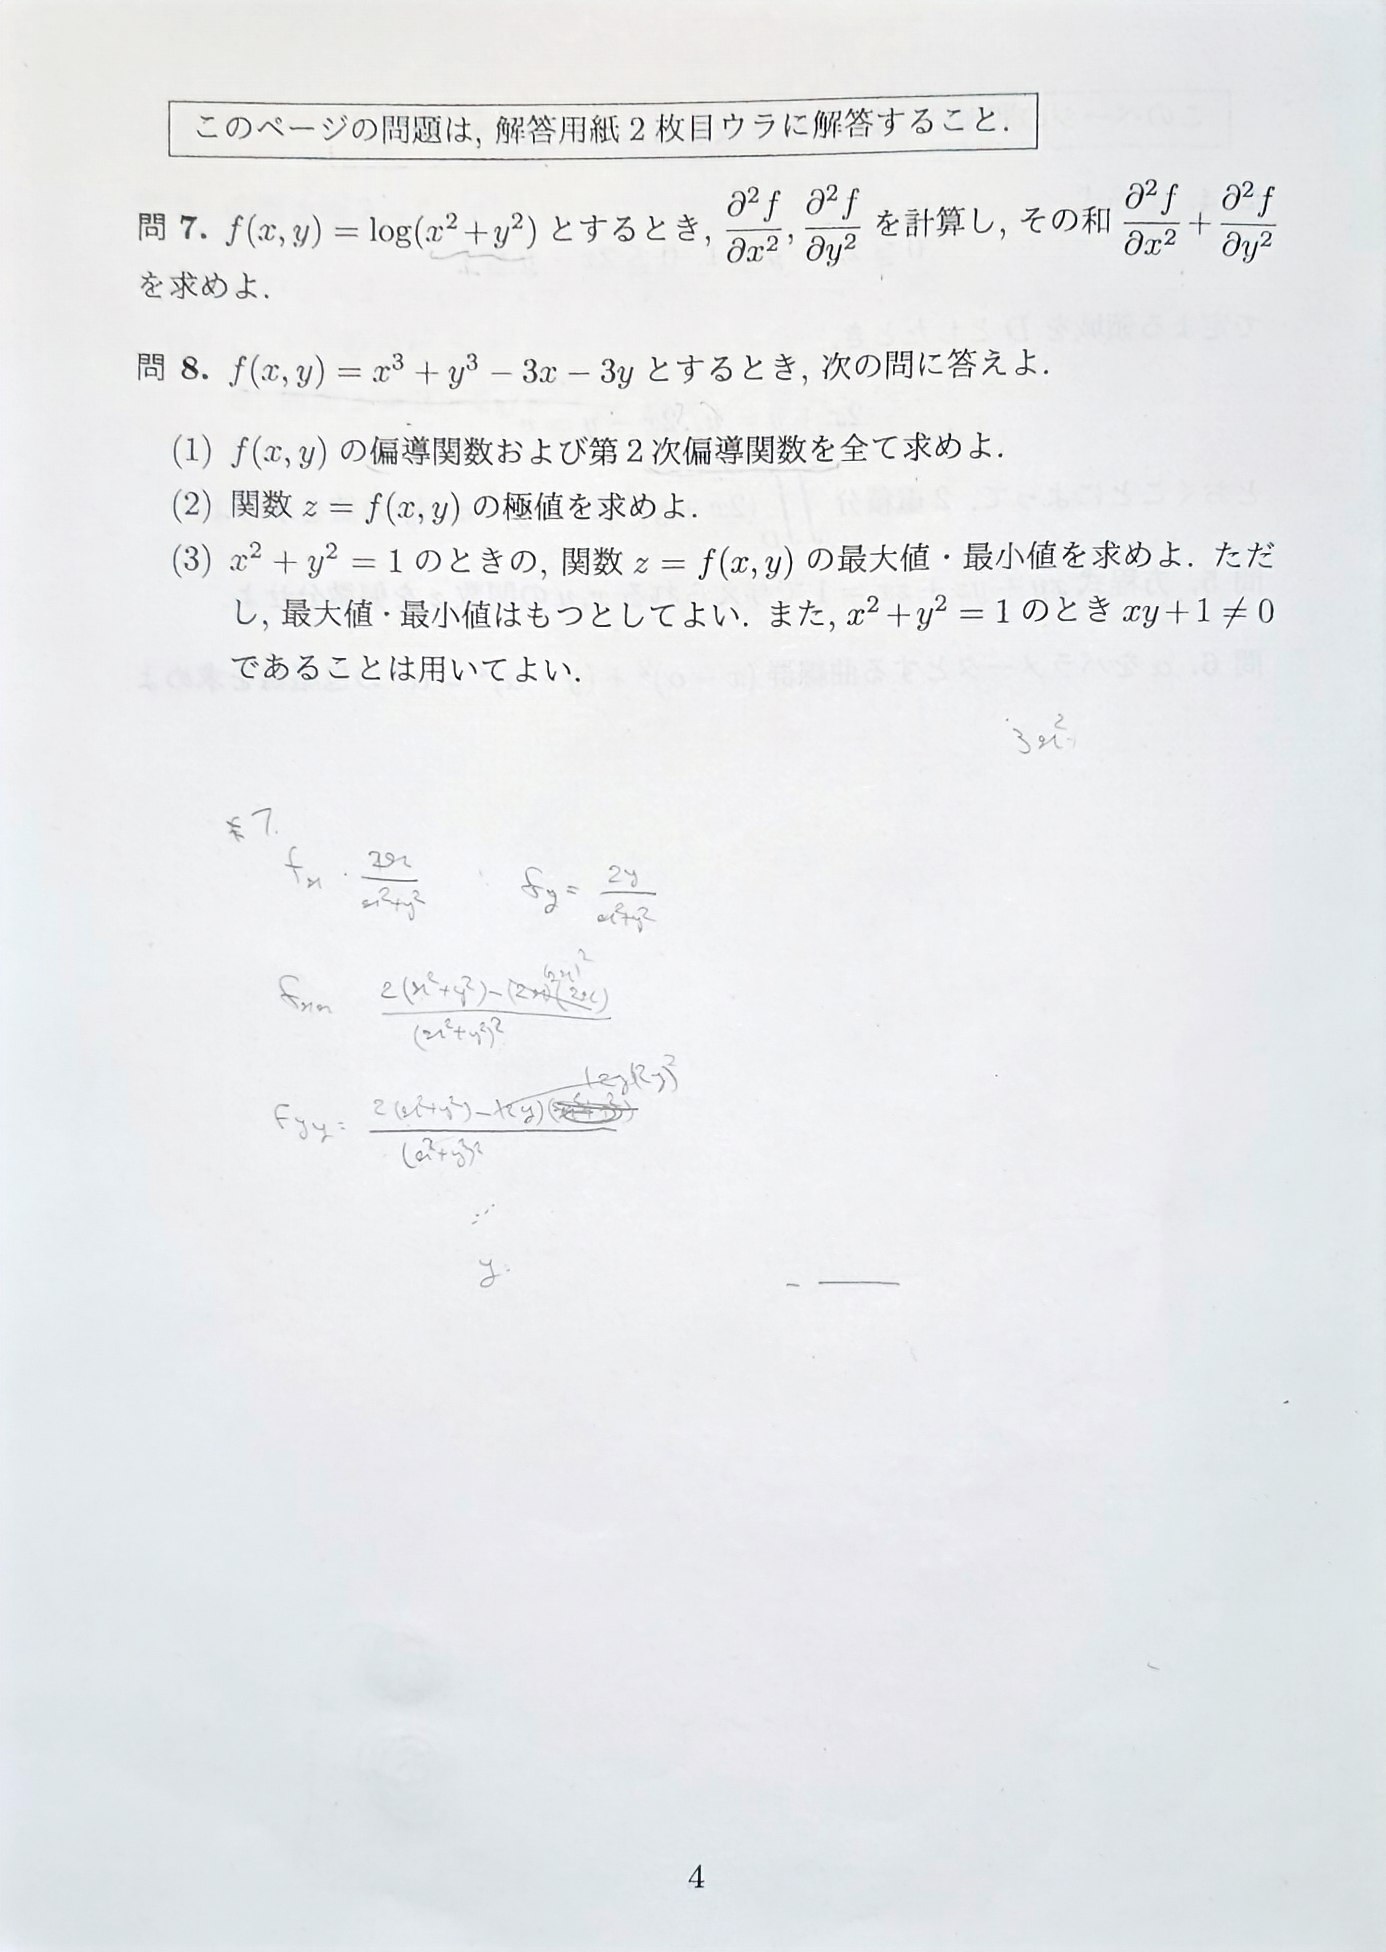 このページの問題は, 解答用紙 2 枚目ウラに解答すること.
問 7. f(x, y) = log(x² + y²) とするとき, ∂²f/∂x², ∂²f/∂y² を計算し, その和 ∂²f/∂x² + ∂²f/∂y²
を求めよ.
問 8. f(x, y) = x³ + y³ − 3x − 3y とするとき, 次の問に答えよ.
(1) f(x, y) の偏導関数および第 2 次偏導関数を全て求めよ.
(2) 関数 z = f(x, y) の極値を求めよ.
(3) x² + y² = 1 のときの, 関数 z = f(x, y) の最大値・最小値を求めよ. ただ
し, 最大値・最小値はもつとしてよい. また, x² + y² = 1 のとき xy + 1 ≠ 0
であることは用いてよい.
3x²
7.
fx · 2x/(x²+y²) fy = 2y/(x²+y²)
fxx 2(x²+y²)−(2x)²/(x²+y²)²
Fyy = 2(x²+y²)−(2y)²/(x²+y²)²
y
4